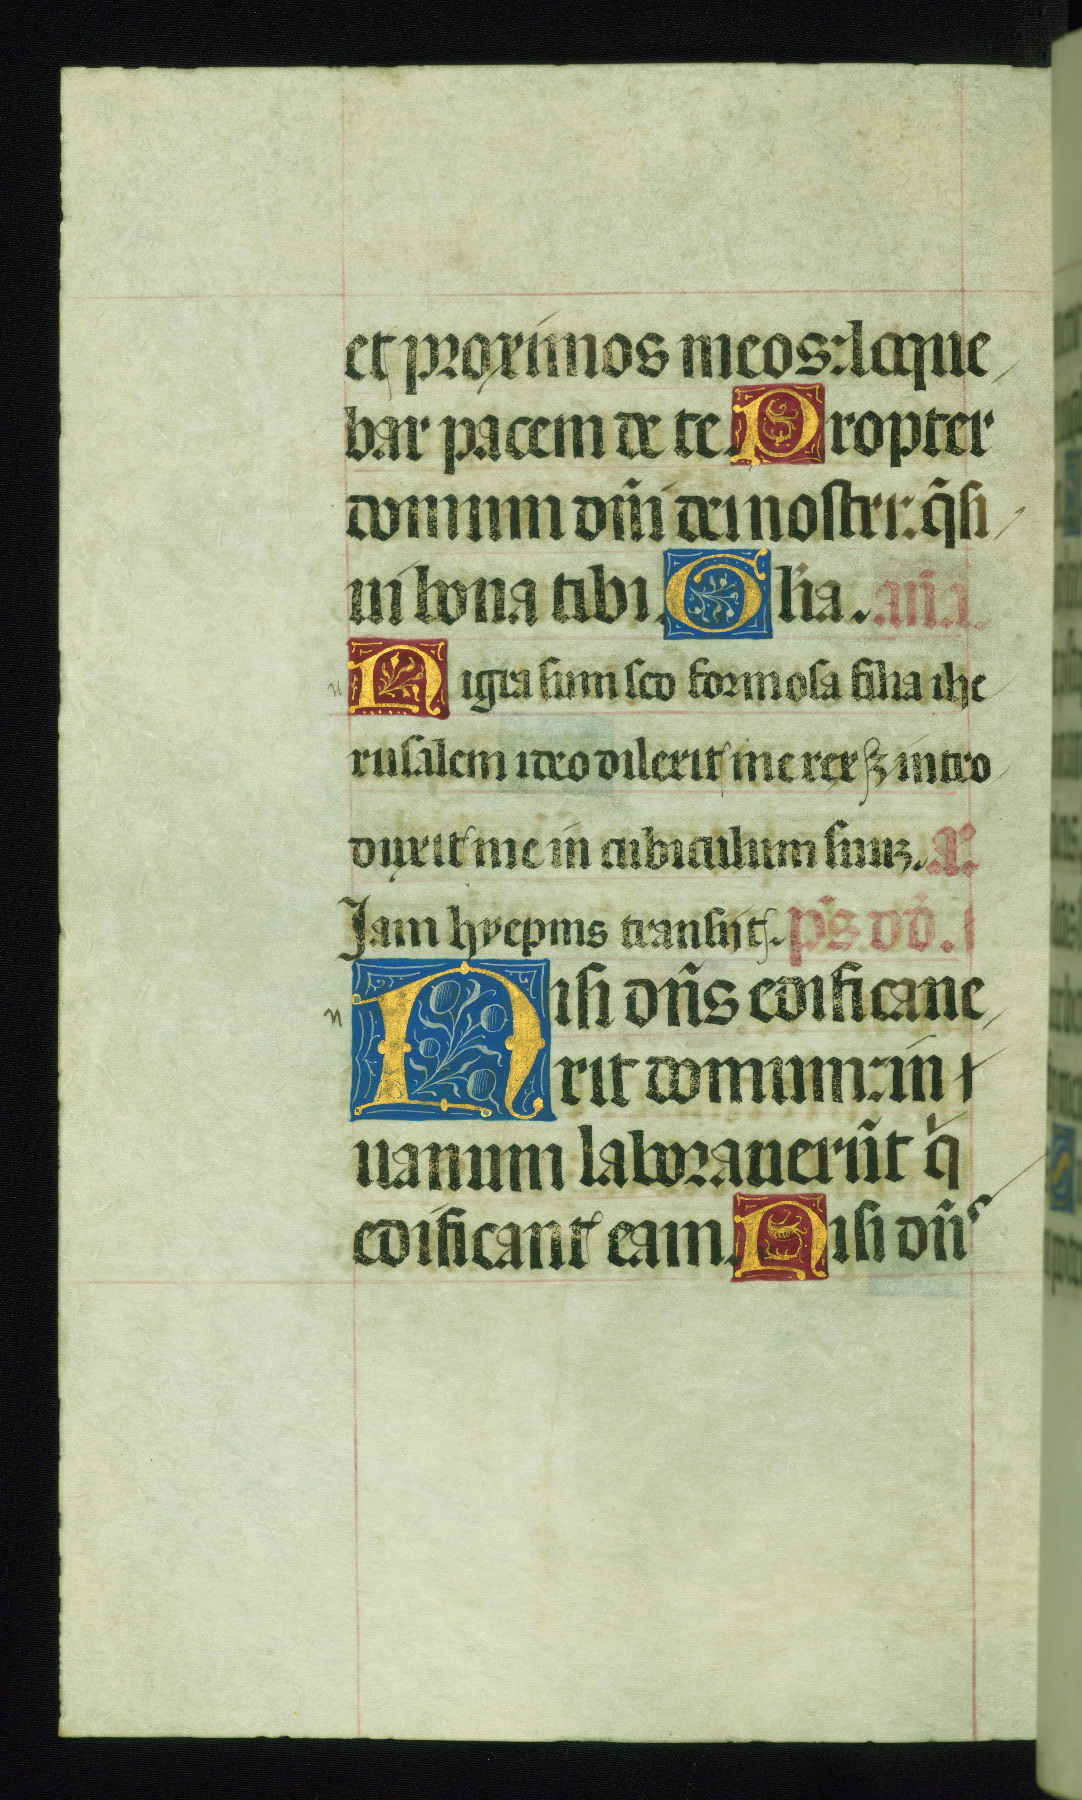 et proximos meos: loque
bar pacem de te. Propter
domum dñi dei nostri: q̃si
ui bona tibi. Glia. añа.
Nigra sum sed formosa filia ihe
rusalem ideo dilexit me rex ⁊ intro
duxit me in cubiculum suuꝫ. 
Jam hyepms transijt. ps dd.
Nisi dñs edificaue
rit domum: in
uanum laborauerũt q̇
edificant eam. Nisi dñs